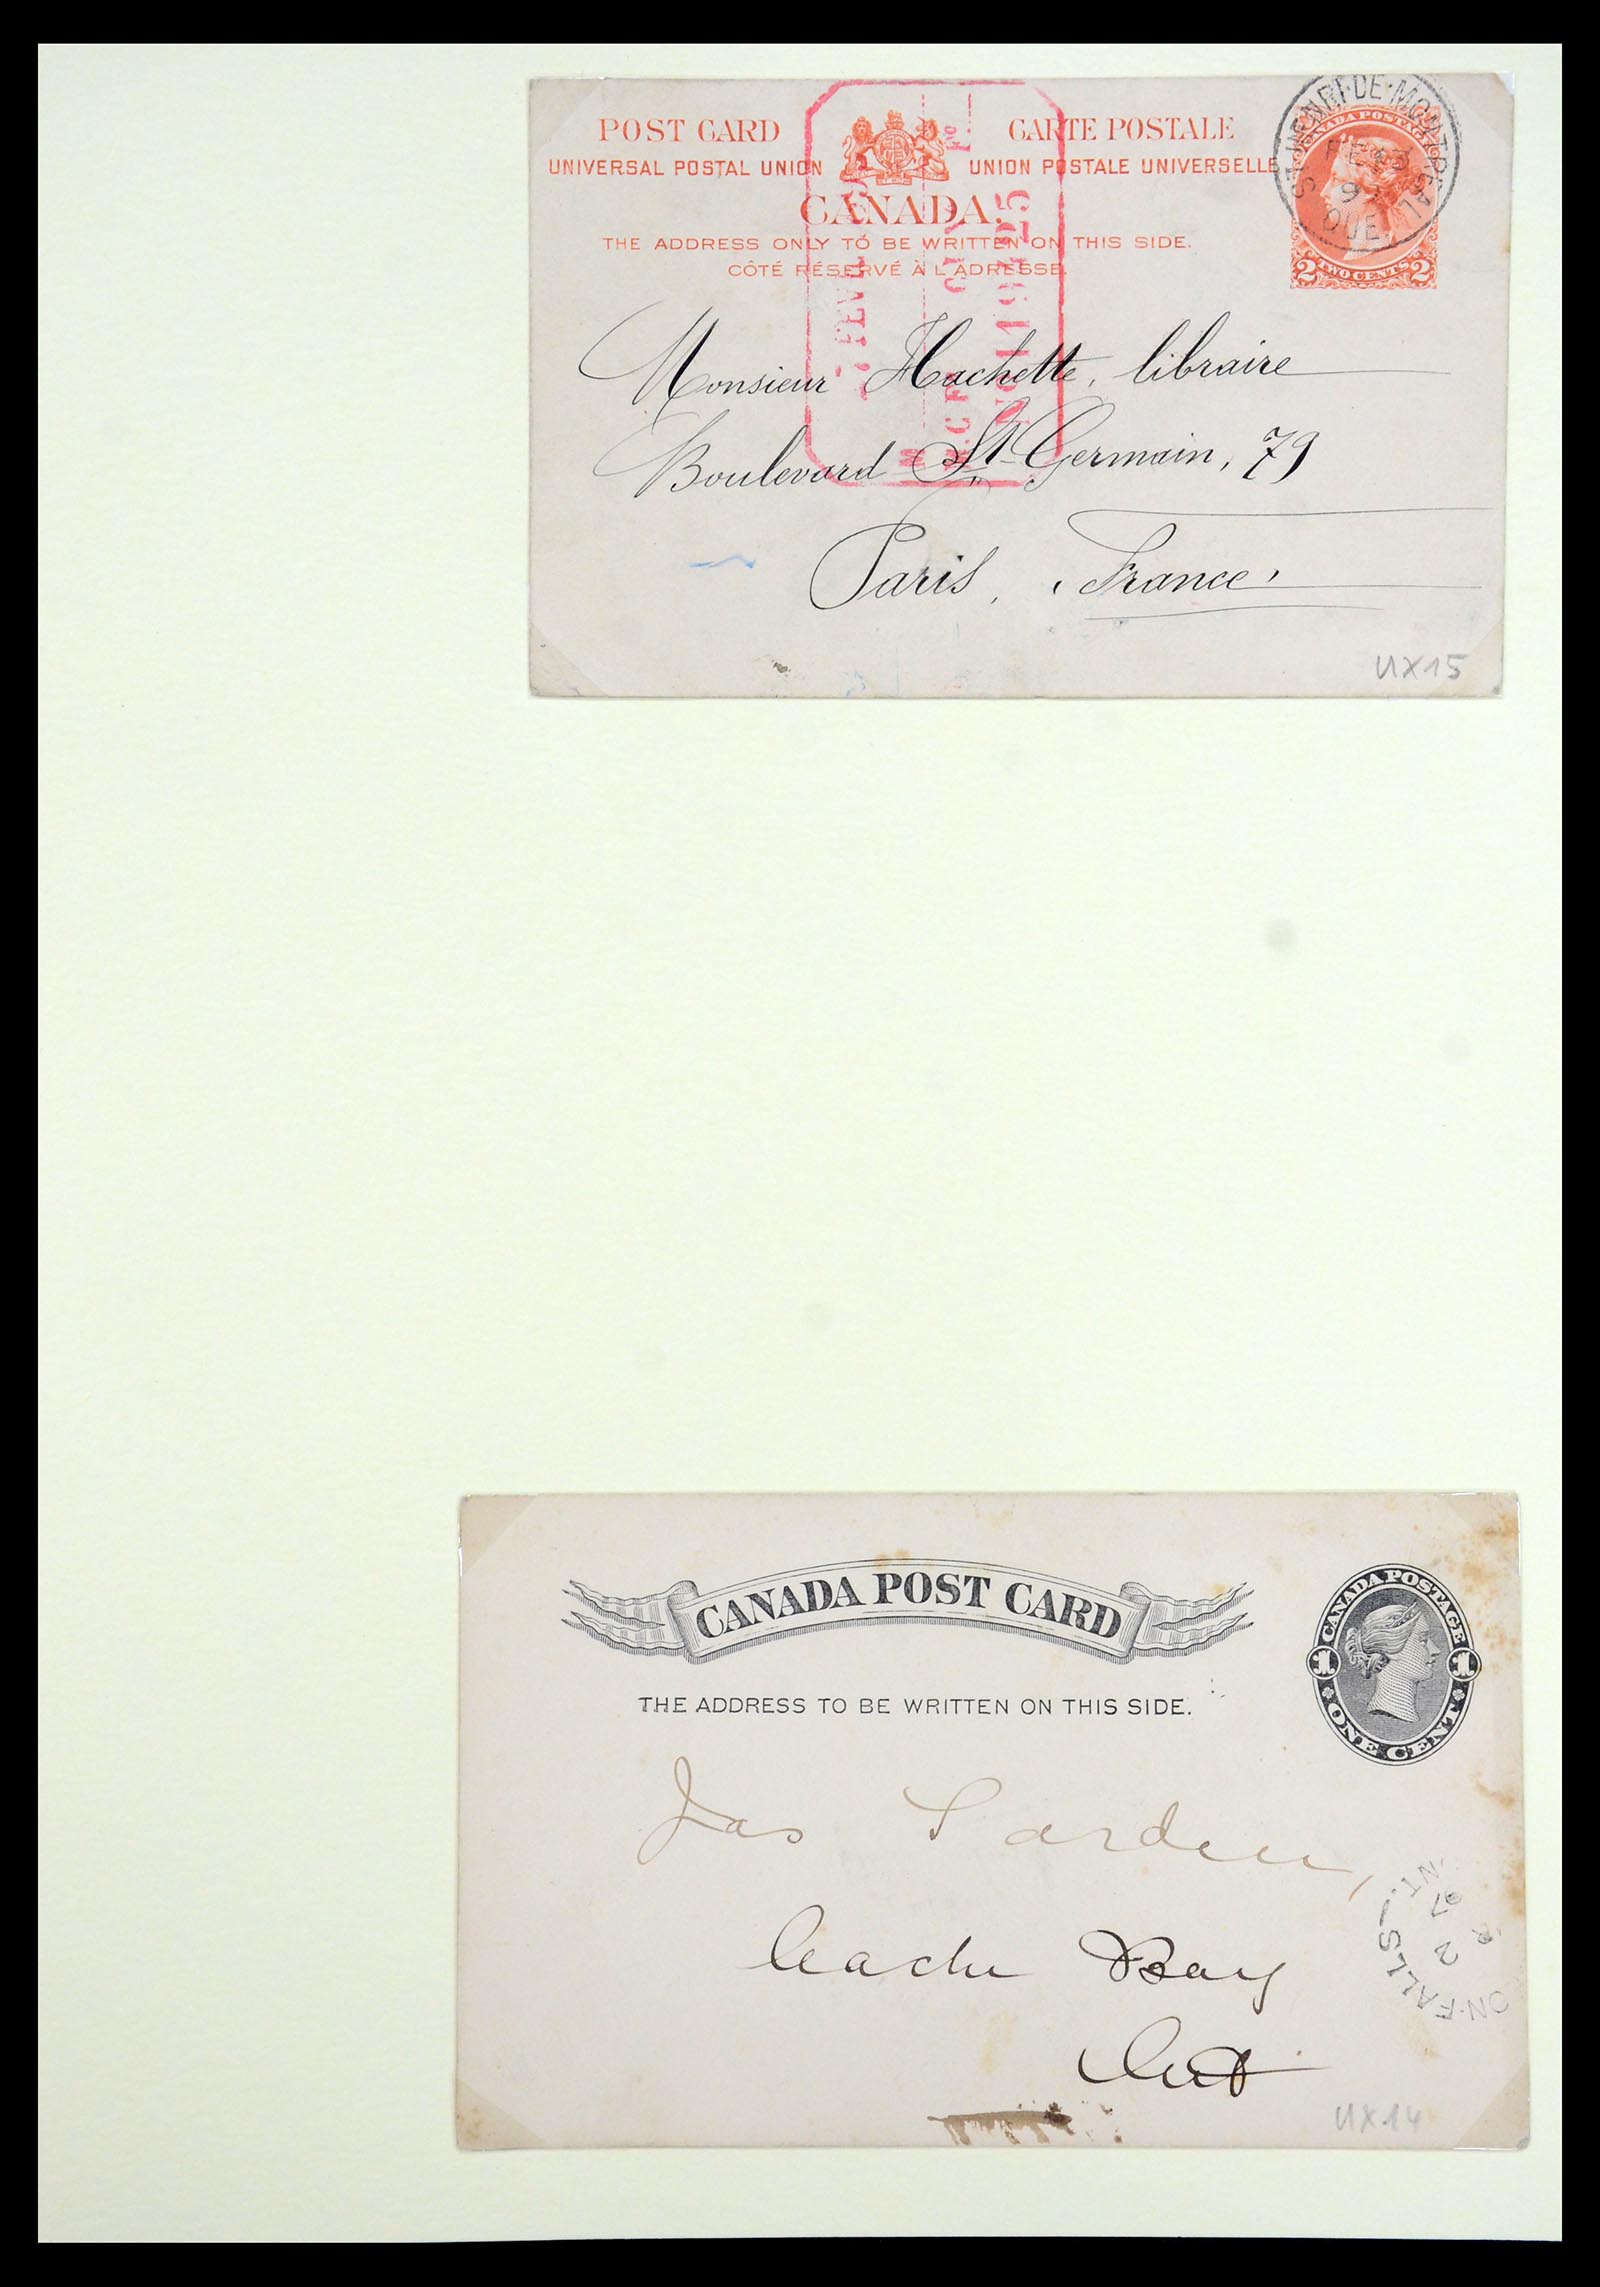 POST CARD CARTE POSTALE
UNIVERSAL POSTAL UNION UNION POSTALE UNIVERSELLE
CANADA.
THE ADDRESS ONLY TO BE WRITTEN ON THIS SIDE.
CÔTÉ RÉSERVÉ À L'ADRESSE.
CANADA POSTAGE
2 TWO CENTS 2
ST. HENRI·DE·MONTREAL
QUE.
No
FEVR
Monsieur Hachette, libraire
Boulevard St-Germain, 79
Paris, France
UX15
CANADA POST CARD
THE ADDRESS TO BE WRITTEN ON THIS SIDE.
CANADA POSTAGE
1 1
ONE CENT
Jas
Cache Bay
Ont
ON·FALLS
2
97
NT.
UX14